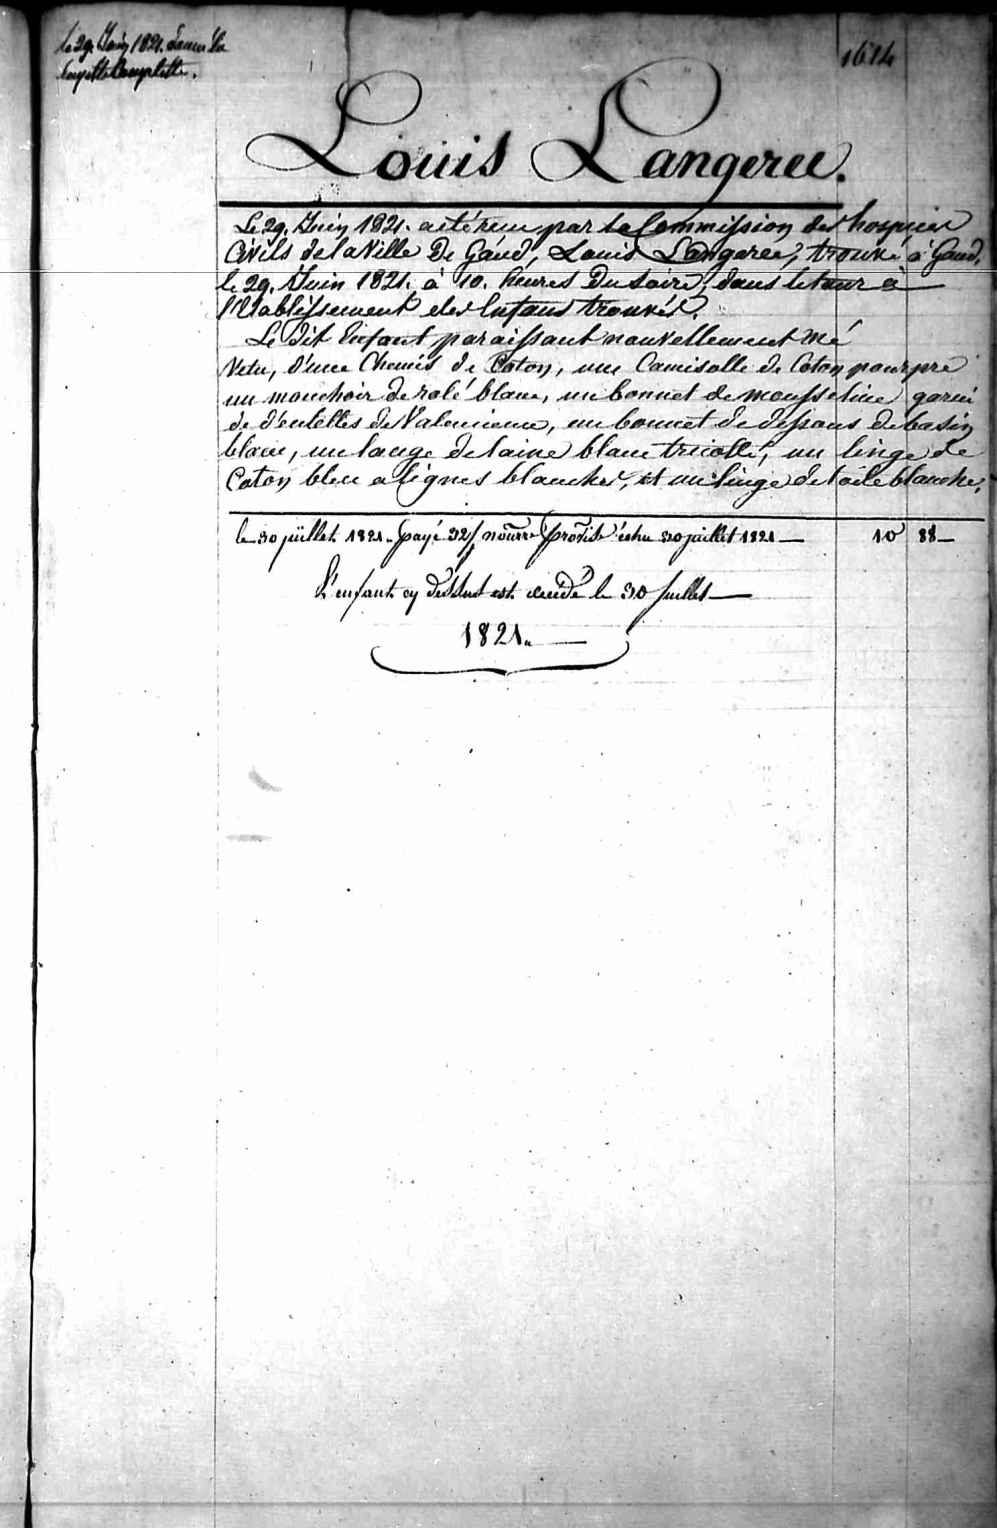 le 29. Juin 1821. donné la
layette Complette.
1614
Louis Langeree.
Le 29. Juin 1821. a été reçu par la Commission des hospices
Civils de la Ville De Gand, Louis Langeree, trouvé à Gand,
le 29. Juin 1821. à 10. heures Du Soire, dans le tour à
l'Etablissement des Enfans trouvés.
Le Dit Enfant paraissant nouvellement né
Vetu, d'une Chemis de Coton, une Camisolle de Coton pourpre
un mouchoir de blanc, un bonnet de mousseline garni
de d'entelles de Valencienne, un bonnet de dessous de basin
blanc, un lange de laine blanc tricotté, un linge de
Coton bleu a lignes blanches, et un linge de toile blanche.
le 30 juillet 1821. payé 32/ échu 30 juillet 1821 — 10 88 —
L'enfant cy dessus est décédé le 30 Juillet —
1821. —